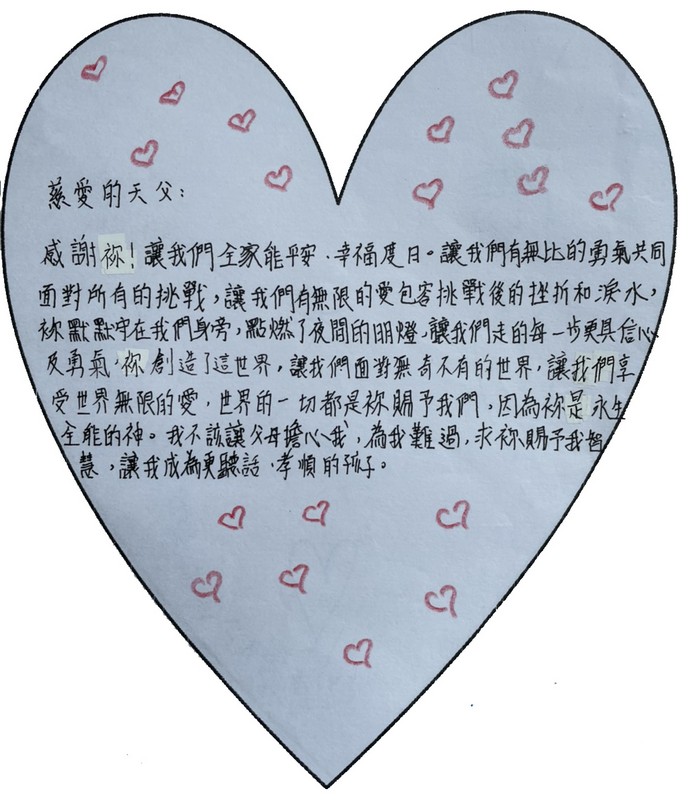 慈愛的天父：
感謝祢！讓我們全家能平安、幸福度日。讓我們有無比的勇氣共同
面對所有的挑戰，讓我們有無限的愛包容挑戰後的挫折和淚水，
祢默默守在我們身旁，點燃了夜間的明燈，讓我們走的每一步更具信心
及勇氣，祢創造了這世界，讓我們面對無奇不有的世界，讓我們享
受世界無限的愛，世界的一切都是祢賜予我們，因為祢是永生
全能的神。我不該讓父母擔心我，為我難過，求祢賜予我智
慧，讓我成為更聽話、孝順的孩子。